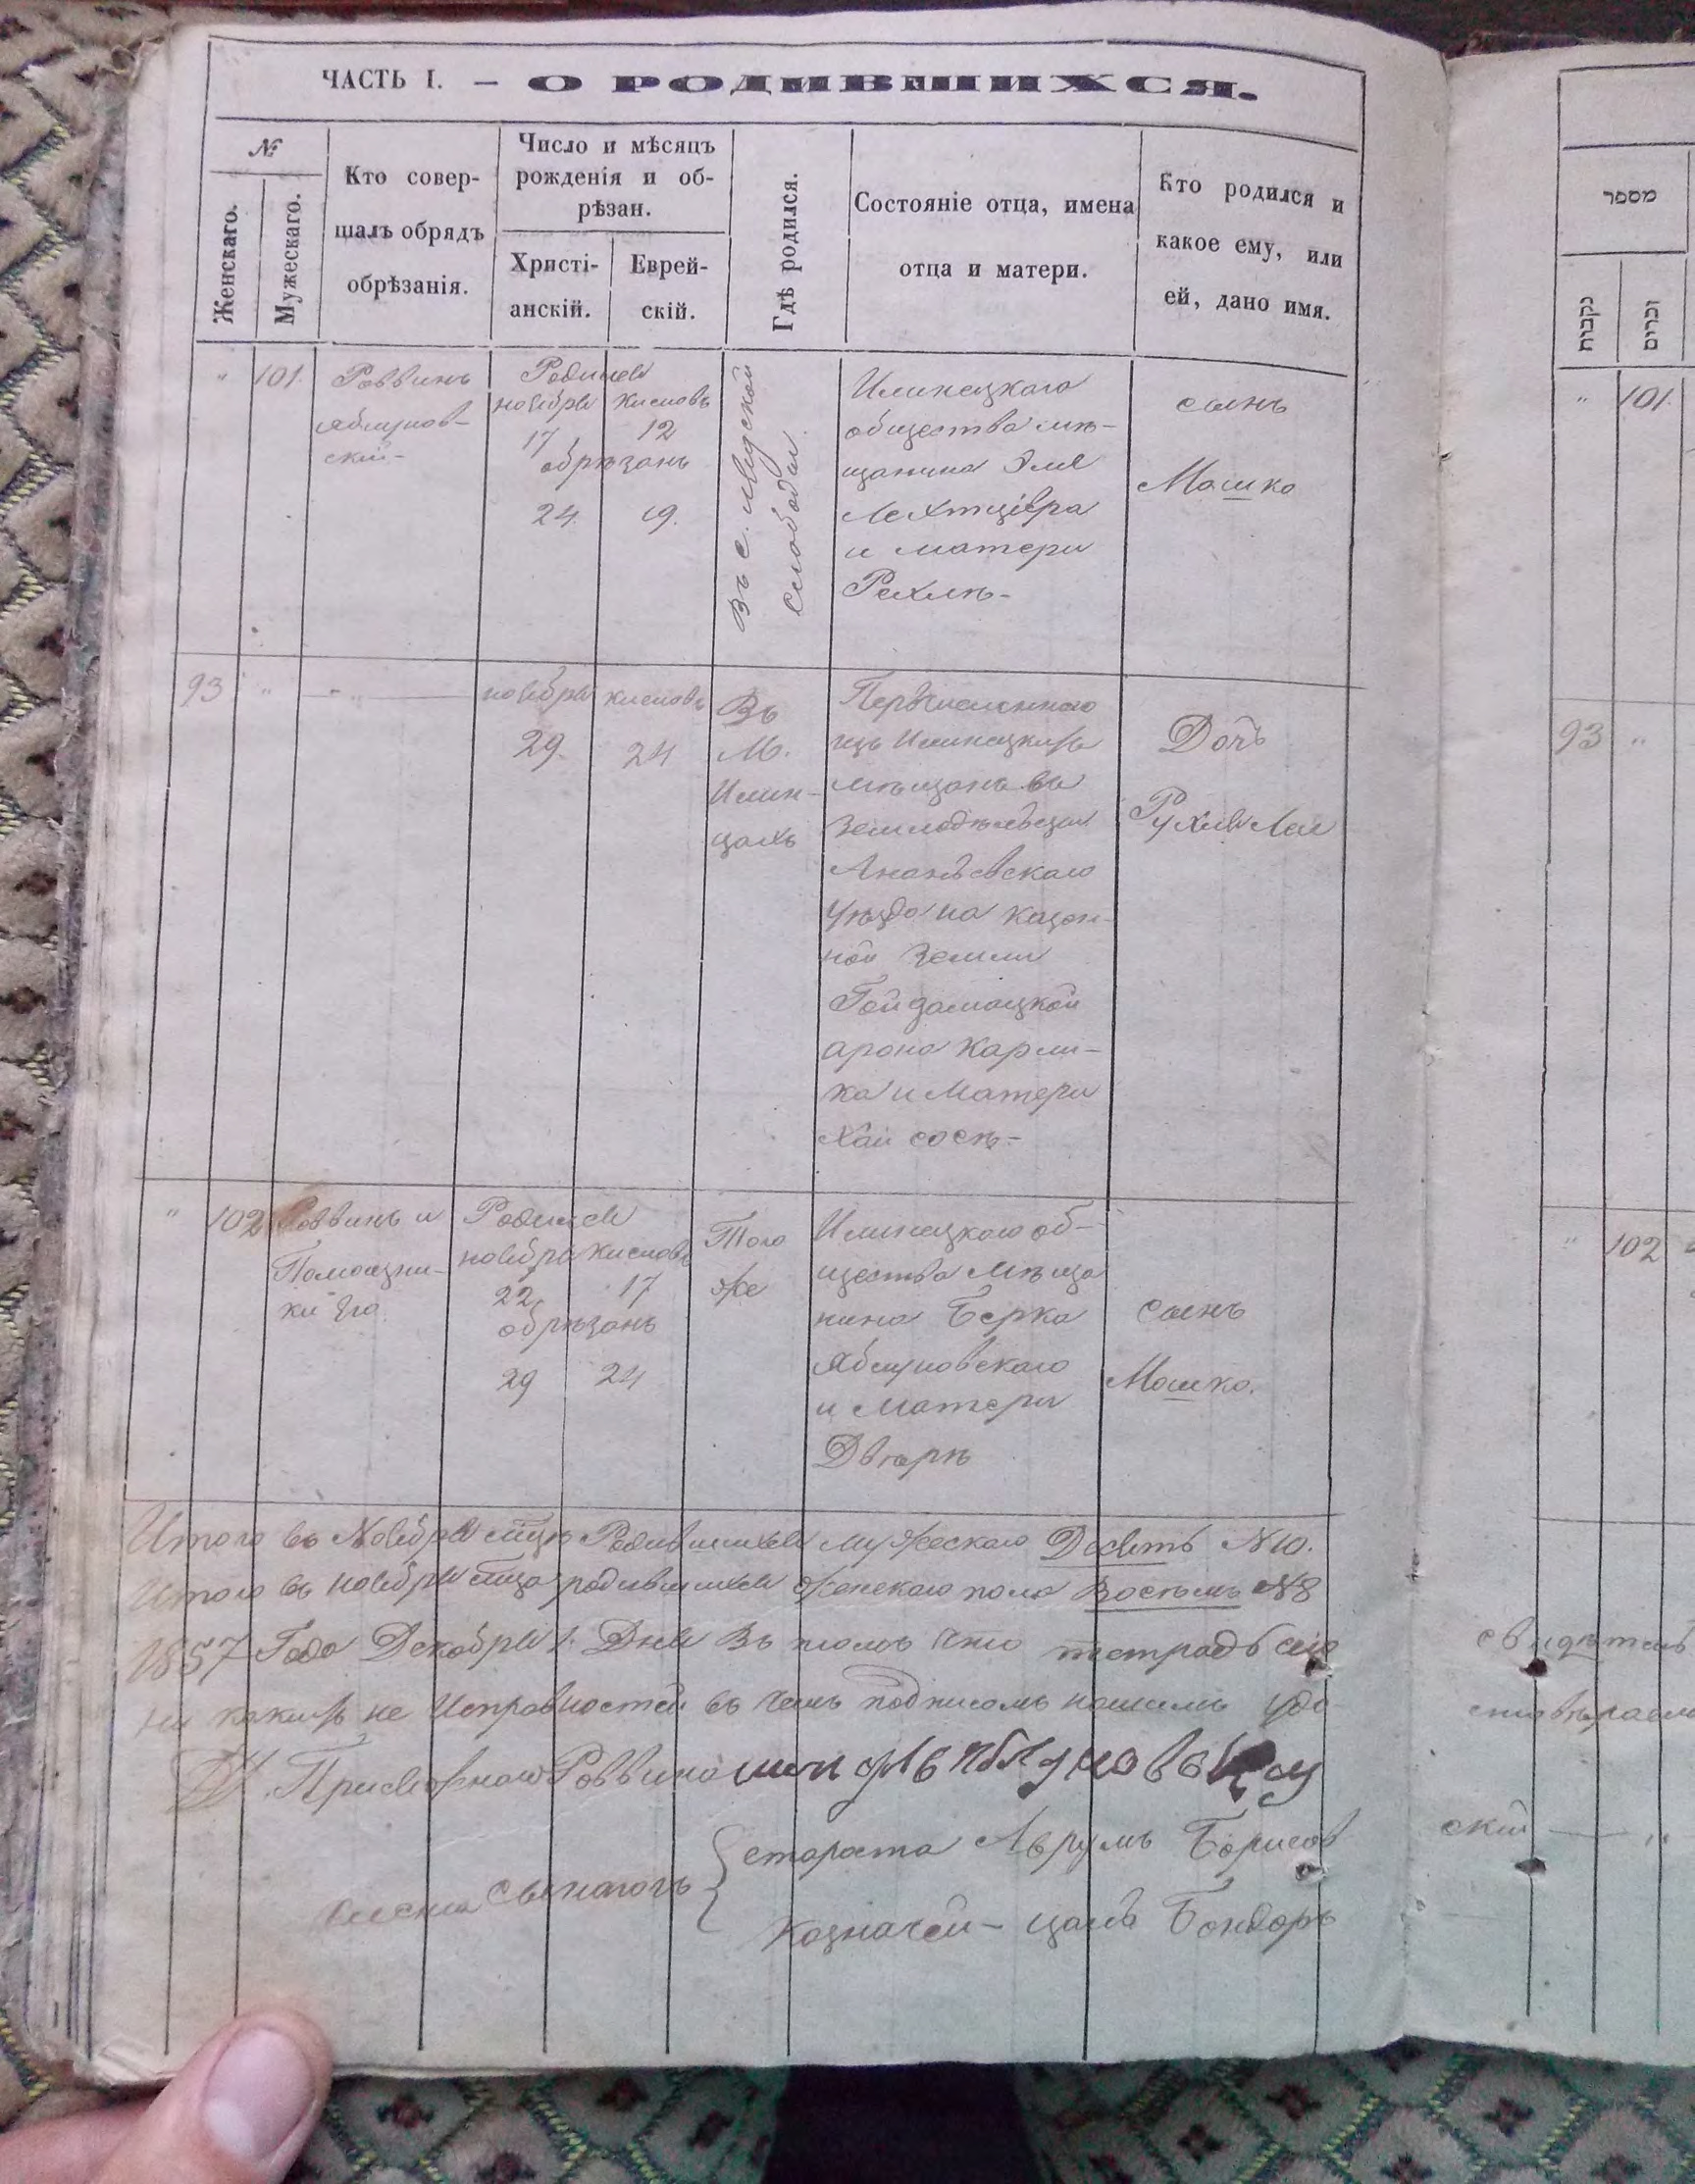 ЧАСТЬ I. — О РОДИВШИХСЯ.
№
Женскаго.
Мужескаго.
Кто совер-
шалъ обрядъ
обрѣзанія.
Число и мѣсяцъ
рожденія и об-
рѣзан.
Христі-
анскій.
Еврей-
скій.
Гдѣ родился.
Состояніе отца, имена
отца и матери.
Кто родился и
какое ему, или
ей, дано имя.
" 101.
Раввинъ
Яблунов-
скій-
Родился
ноября Кислювъ
17 12
обрѣзанъ
24. 19.
Въ с.
слободѣ
Илинецкаго
общества мѣ-
щанина Эля
и матери
Рехлѣ-
сынъ
Мошко
93 "
— " —
ноября кислювъ
29. 24
Въ
М.
Илин-
цахъ
Перечисленнаго
изъ Илинецкихъ
мѣщанъ въ
Земледѣльцы
Ананьевскаго
Уѣзда на казен-
ной Земли
Гайдамацкой
арона Карли-
ка и Матери
Хаи сосѣ-
Дочь
Рухля Лея
" 102
Раввинъ и
Помощни-
ки Его.
Родился
ноября Кислювъ
22, 17
обрѣзанъ
29 24
Того
же
Илинецкаго об-
щества Мѣща
нина Берка
Яблуновскаго
и Матери
Двюрѣ
сынъ
Мошко.
Итого въ Ноябрѣ мцѣ Родившихся мужескаго Десять № 10.
Итого въ ноябрѣ мца родившихся женскаго пола Восемь №8
1857 Года Декабря 1. Дня Въ томъ что тетрадь сія
ни какихъ не Исправностей въ чемъ подписомъ нашимъ удо-
Д. Присяжнаго Раввина
синагогъ
староста Аврумъ Борисов
Казначей- Бондаръ
מספר
נקבות
זכרים
" 101.
93 "
" 102
свидѣтель
ствъ
скій — "